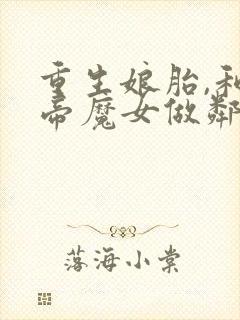 重生娘胎,和
帝魔女做鄰
落海小棠